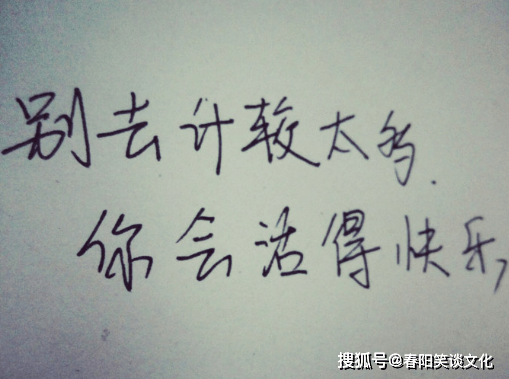 别去计较太多.
你会活得快乐,
搜狐号@春阳笑谈文化